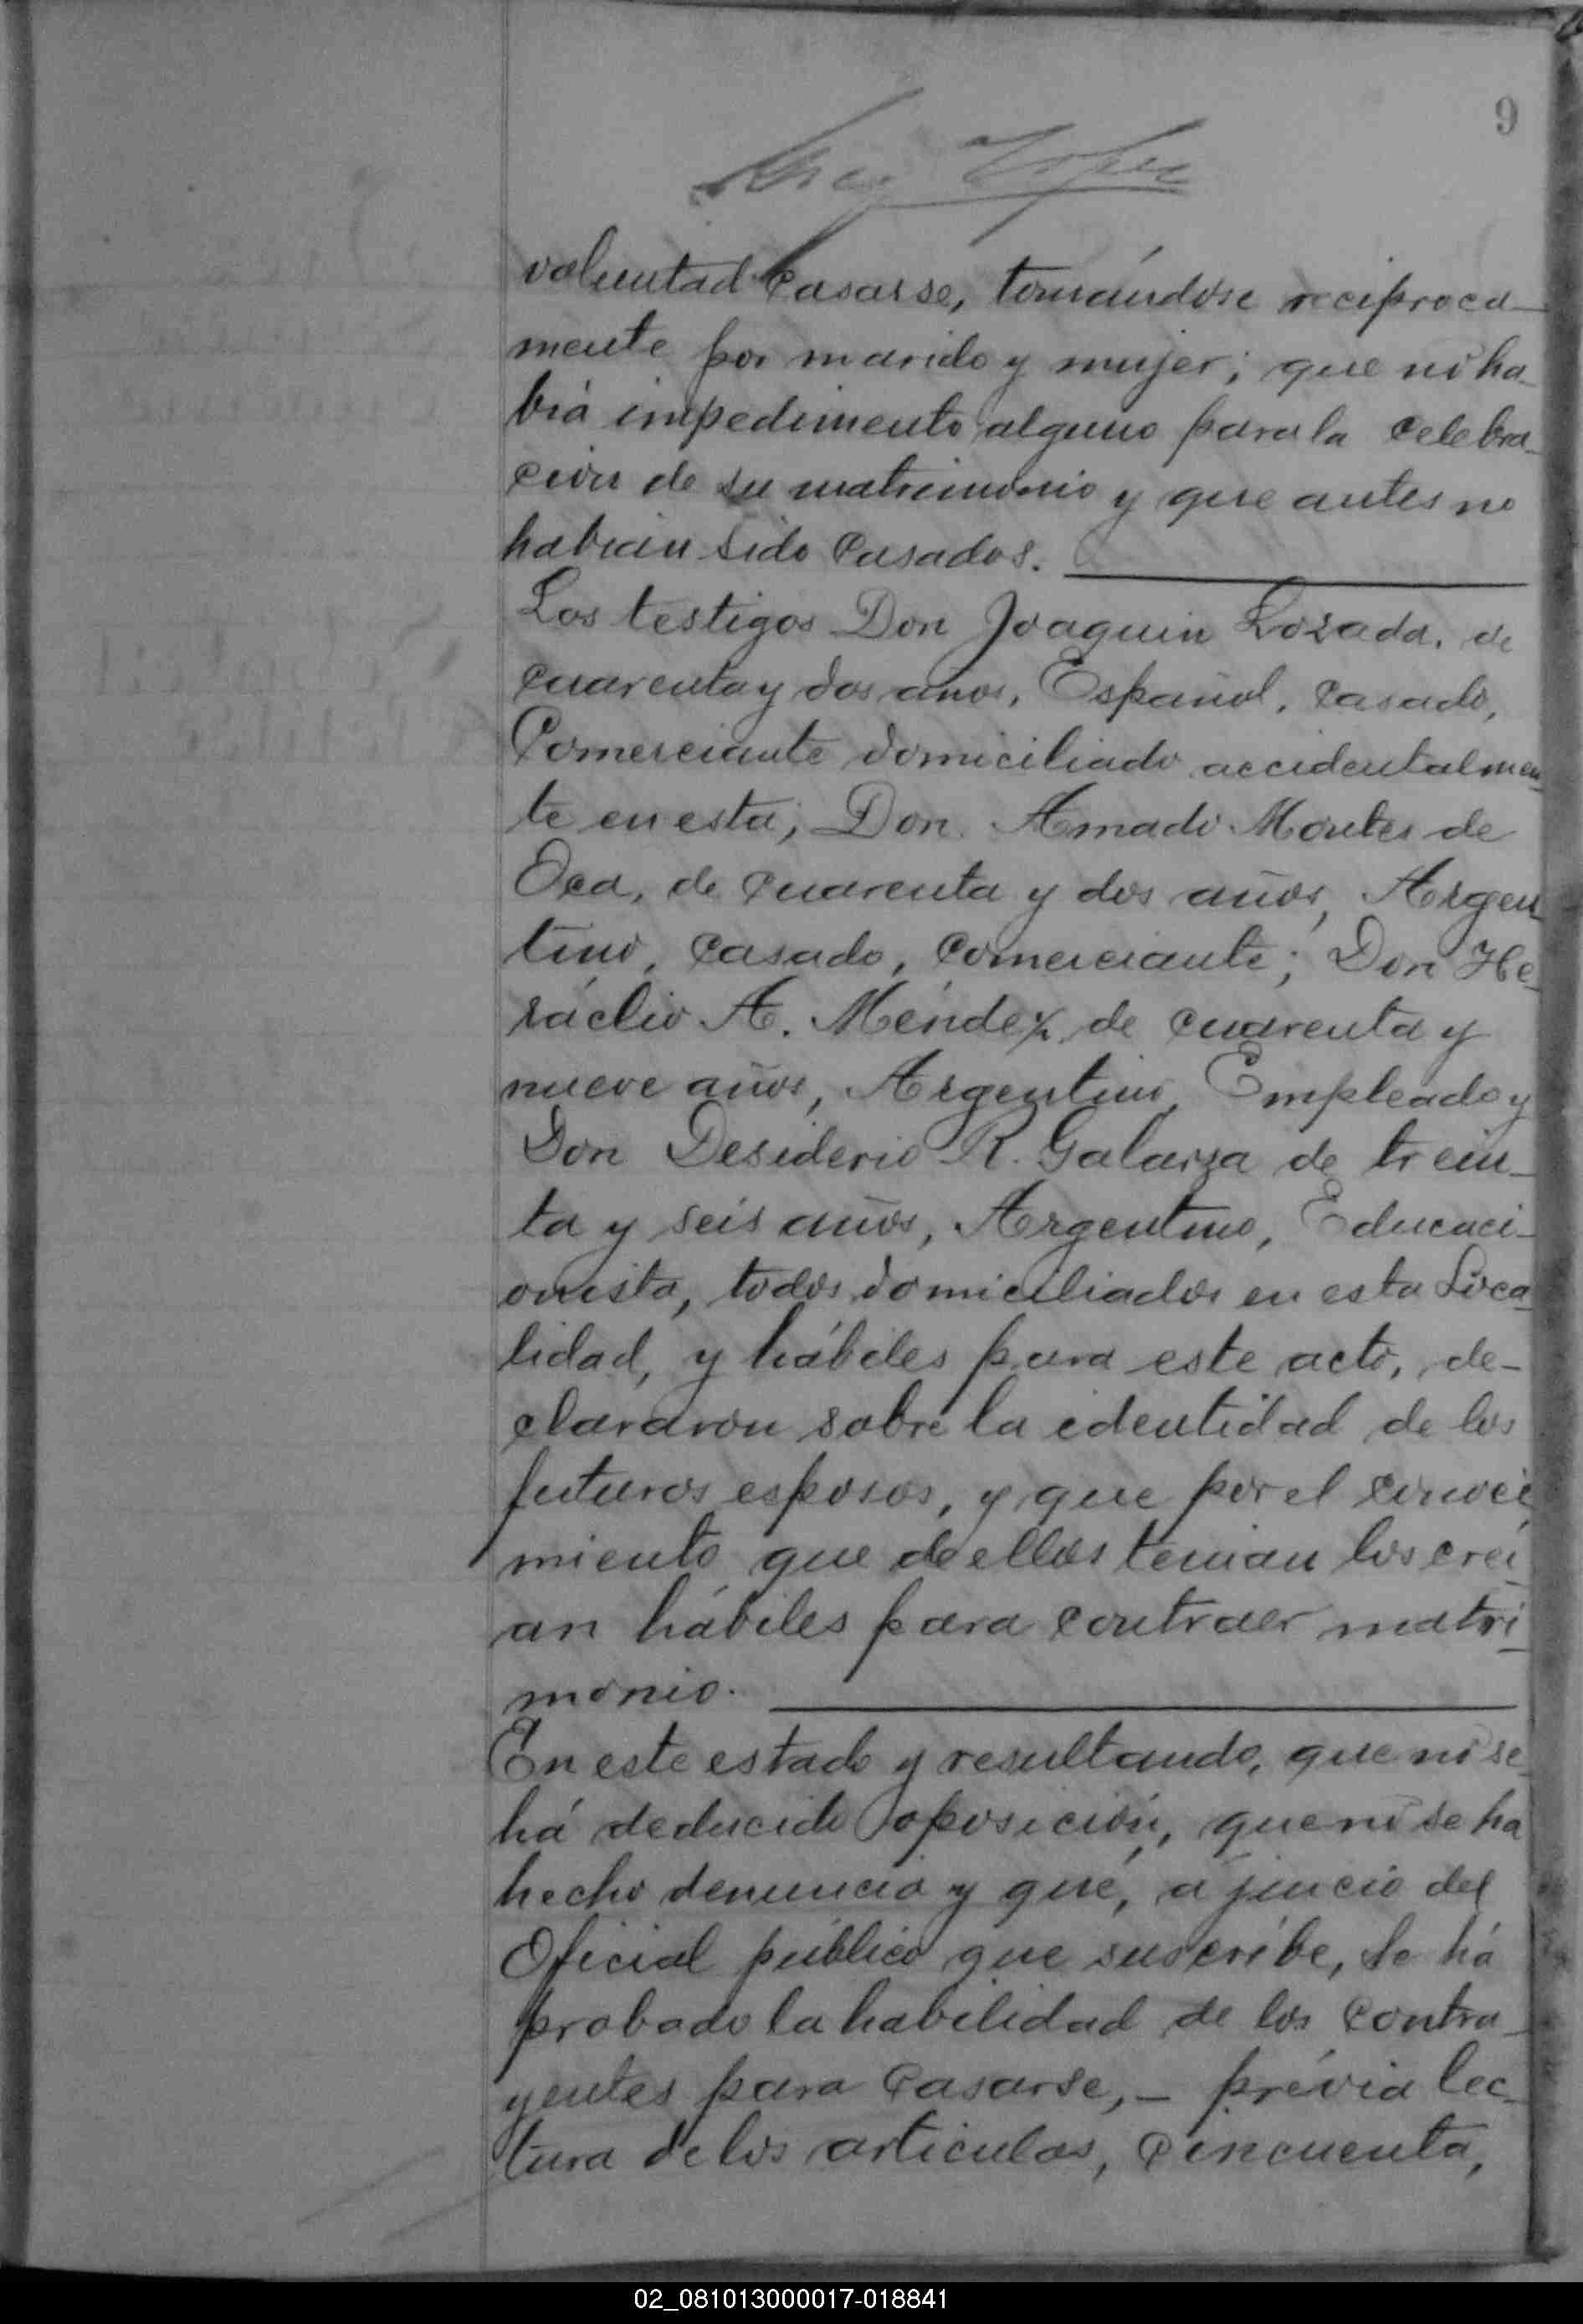 9
voluntad casarse, tomándose reciproca-
mente por marido y mujer; que no ha-
biá impedimento alguno para la celebra-
ción de su matrimonio y que antes no
habian sido casados.
Los testigos Don Joaquin Lozada, de
cuarenta y dos años, Español, casado,
Comerciante domiciliado accidentalmen-
te en esta; Don Amado Montes de
Oca, de cuarenta y dos años, Argen-
tino, casado, comerciante; Don He-
ráclio A. Méndez de cuarenta y
nueve años, Argentino, Empleado y
Don Desiderio R. Galarza de trein-
ta y seis años, Argentino, Educaci-
onista, todos domiciliados en esta Loca-
lidad, y hábiles para este acto, de-
clararon sobre la identidad de los
futuros esposos, y que por el conoci-
miento que de ellos tenian los crei-
an hábiles para contraer matri-
monio.
En este estado y resultando, que no se
há deducido oposición, que no se ha
hecho denuncia y qué, a juicio del
Oficial público que suscribe, se há
probado la habilidad de los contra-
yentes para casarse,- prévia lec-
tura de los articulos, cincuenta,
02_081013000017-018841